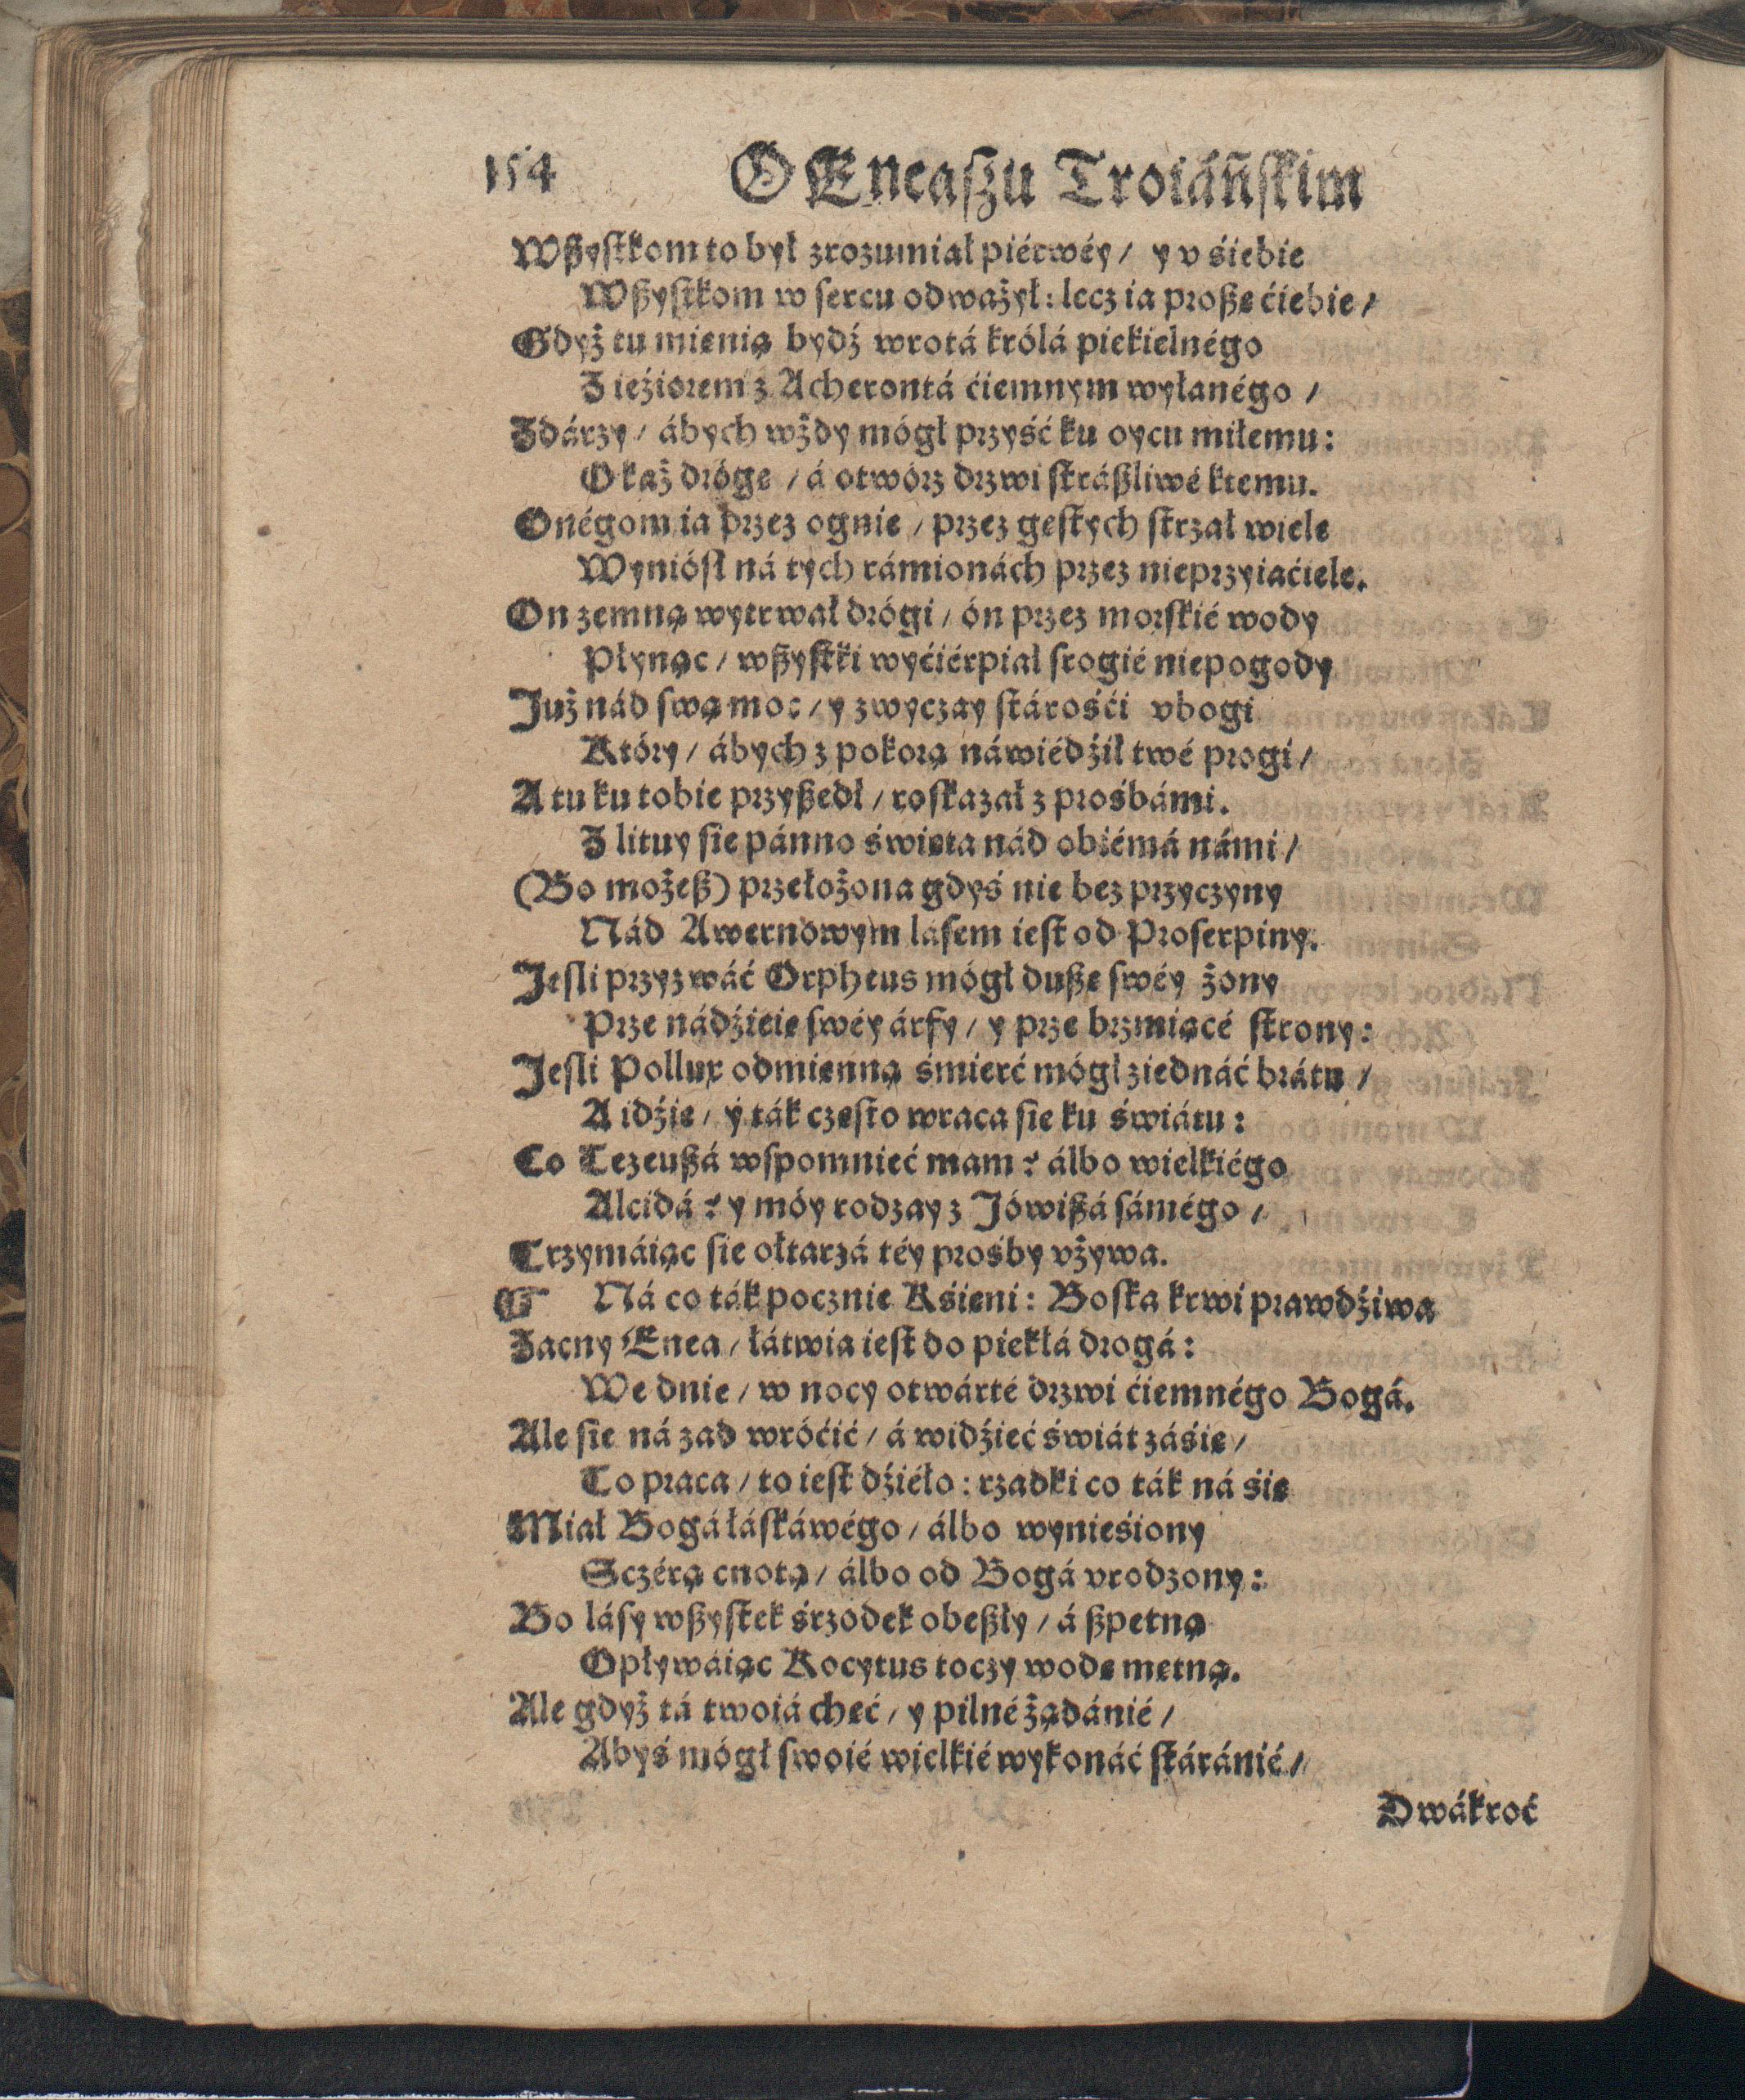 154 O Eneaszu Troiáńskim
Wßystkom to był zrozumiał piérwéy / y v śiebie
Wßystkom w sercu odważył : lecz ia proßę ćiebie /
Gdyż tu mienią bydź wrotá królá piekielnégo
Z ieźiorem z Acherontá ćiemnym wylanégo /
Zdárzy / ábych wżdy mógł przyść ku oycu miłemu :
Okaż drógę / á otwórz drzwi stráßliwé ktemu.
Onégom ia przez ognie / przez gęstych strzał wiele
Wyniósł ná tych rámionách przez nieprzyiaćiele.
On zemną wytrwał drógi / ón przez morskié wody
Płynąc / wßystki wyćiérpiał srogié niepogody
Już nád swą moc / y zwyczay stárośći vbogi
Który / ábych z pokorą náwiédźił twé progi /
A tu ku tobie przyßedł / roskazał z prośbámi.
Zlituy sie pánno święta nád obiémá námi /
(Bo możeß) przełożona gdyś nie bez przyczyny
Nád Awernowym lásem iest od Proserpiny.
Jesli przyzwáć Orpheus mógł dußę swéy żony
Prze nádźieię swéy árfy / y prze brzmiącé strony :
Jesli Pollux odmienną śmierć mógł ziednáć brátu /
A idźie / y ták często wraca sie ku świátu :
Co Tezeußá wspomnieć mam ? álbo wielkiégo
Alcidá ? y móy rodzay z Jówißá sámégo /
Trzymáiąc sie ołtarzá téy prośby vżywa.
☞ Ná co ták pocznie Kśieni : Boska krwi prawdźiwa
Zacny Enea / łátwia iest do piekłá drogá :
We dnie / w nocy otwárté drzwi ćiemnégo Bogá.
Ale sie ná zad wróćić / á widźieć świát záśię /
To praca / to iest dźiéło : rzadki co ták ná śię
Miał Bogá łáskáwégo / álbo wynieśiony
Sczérą cnotą / álbo od Bogá vrodzony :
Bo lásy wßystek śrzodek obeßły / á ßpetną
Opływáiąc Kocytus toczy wodę mętną.
Ale gdyż tá twoiá chęć / y pilné żądánié /
Abyś mógł swoié wielkié wykonáć stáránié /
Dwákroć